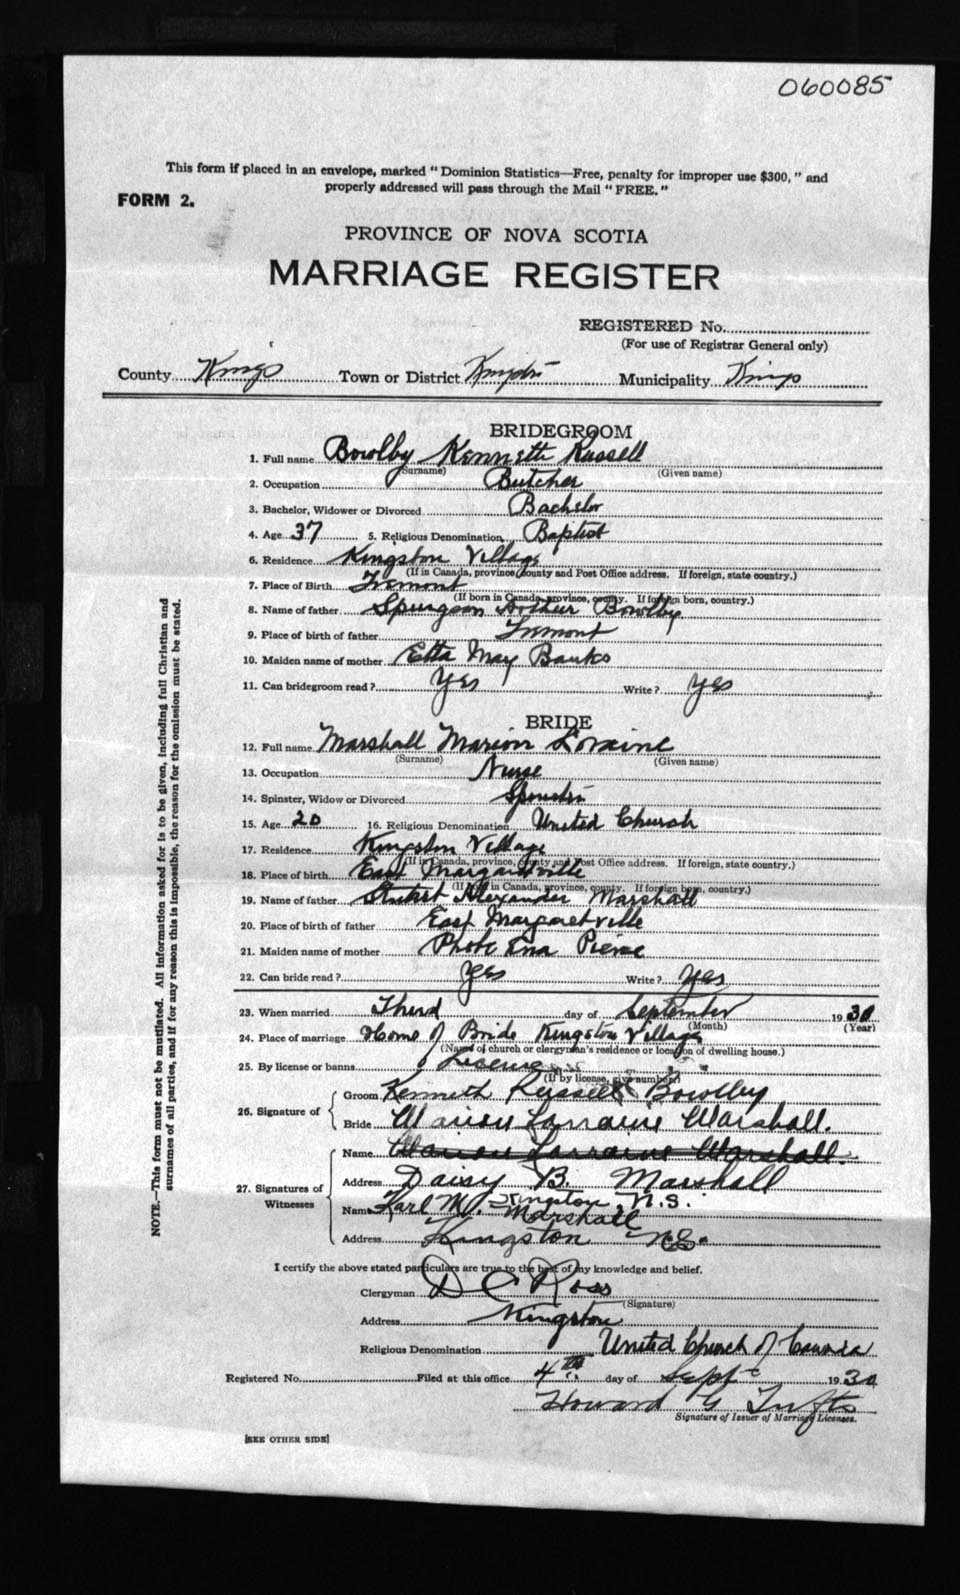 060085
This form if placed in an envelope, marked "Dominion Statistics—Free, penalty for improper use $300," and
properly addressed will pass through the Mail "FREE."
FORM 2.
PROVINCE OF NOVA SCOTIA
MARRIAGE REGISTER
REGISTERED No.
(For use of Registrar General only)
County Kings Town or District Kingston Municipality Kings
BRIDEGROOM
1. Full name Bowlby Kenneth Russell
(Surname) (Given name)
2. Occupation Butcher
3. Bachelor, Widower or Divorced Bachelor
4. Age 37 5. Religious Denomination Baptist
6. Residence Kingston Village
(If in Canada, province, county and Post Office address. If foreign, state country.)
7. Place of Birth Tremont
(If born in Canada, province, county. If foreign born, country.)
8. Name of father Spurgson Arthur Bowlby
9. Place of birth of father Tremont
10. Maiden name of mother Etta May Banks
11. Can bridegroom read? Yes Write? Yes
BRIDE
12. Full name Marshall Marion Loraine
(Surname) (Given name)
13. Occupation Nurse
14. Spinster, Widow or Divorced Spinster
15. Age 20 16. Religious Denomination United Church
17. Residence Kingston Village
(If in Canada, province, county and Post Office address. If foreign, state country.)
18. Place of birth East Margaretville
(If born in Canada, province, county. If foreign born, country.)
19. Name of father Alexander Marshall
20. Place of birth of father East Margaretville
21. Maiden name of mother Ena Pierce
22. Can bride read? Yes Write? Yes
23. When married Third day of September 1930
(Month) (Year)
24. Place of marriage Home of Bride Kingston Village
(Name of church or clergyman's residence or location of dwelling house.)
25. By license or banns License
(If by license, give number)
26. Signature of
Groom Kenneth Russell Bowlby
Bride Marion Lorraine Marshall.
27. Signatures of Witnesses
Name Marion Lorraine Marshall.
Address Daisy B. Marshall
Kingston N.S.
Name Karl M. Marshall
Address Kingston N.S.
I certify the above stated particulars are true to the best of my knowledge and belief.
Clergyman D C Ross
(Signature)
Address Kingston
Religious Denomination United Church of Canada
Registered No. Filed at this office 4th day of Sept 1930
Howard G Tufts
Signature of Issuer of Marriage Licenses.
[SEE OTHER SIDE]
NOTE.—This form must not be mutilated. All information asked for is to be given, including full Christian and
surnames of all parties, and if for any reason this is impossible, the reason for the omission must be stated.